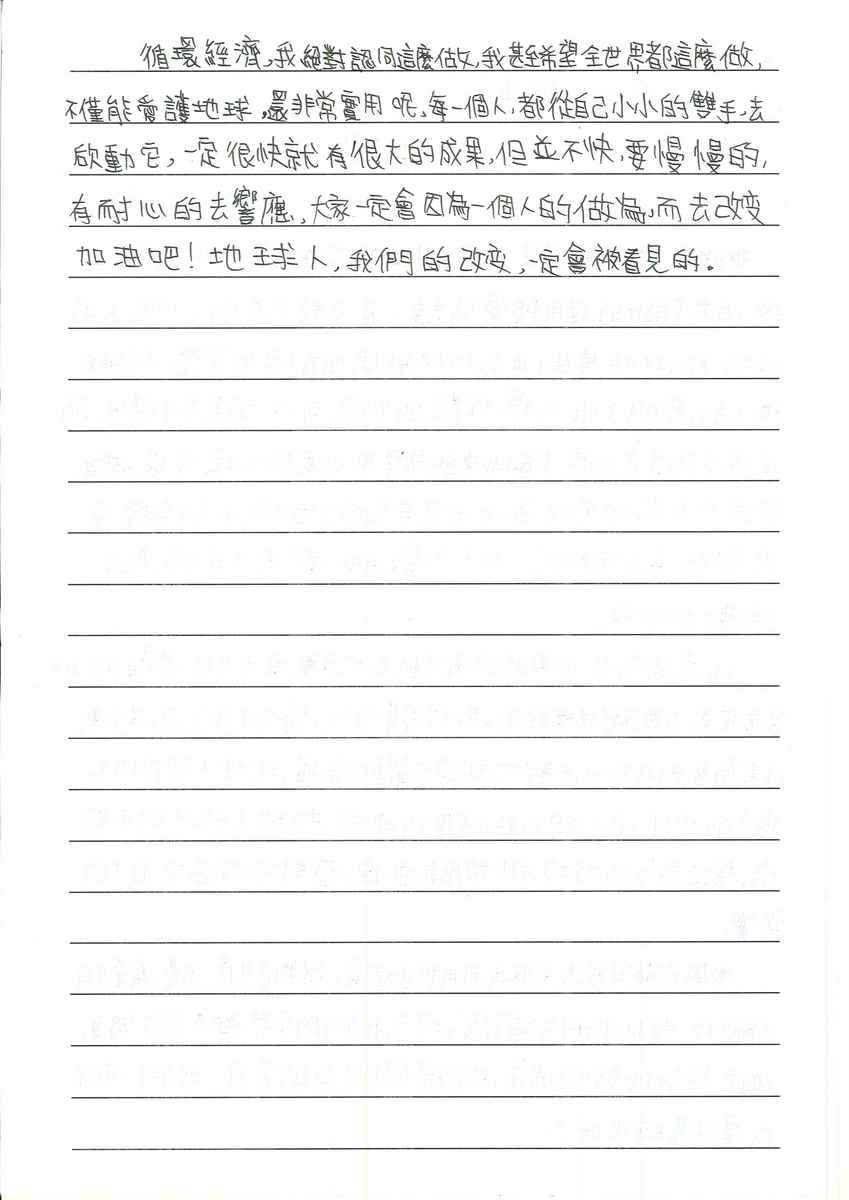 循環經濟，我絕對認同這麼做，我甚至希望全世界都這麼做，
不僅能愛護地球，還非常實用呢，每一個人，都從自己小小的雙手，去
啟動它，一定很快就有很大的成果，但並不快，要慢慢的，
有耐心的去響應，大家一定會因為一個人的做為，而去改變
加油吧！地球人，我們的改變，一定會被看見的。